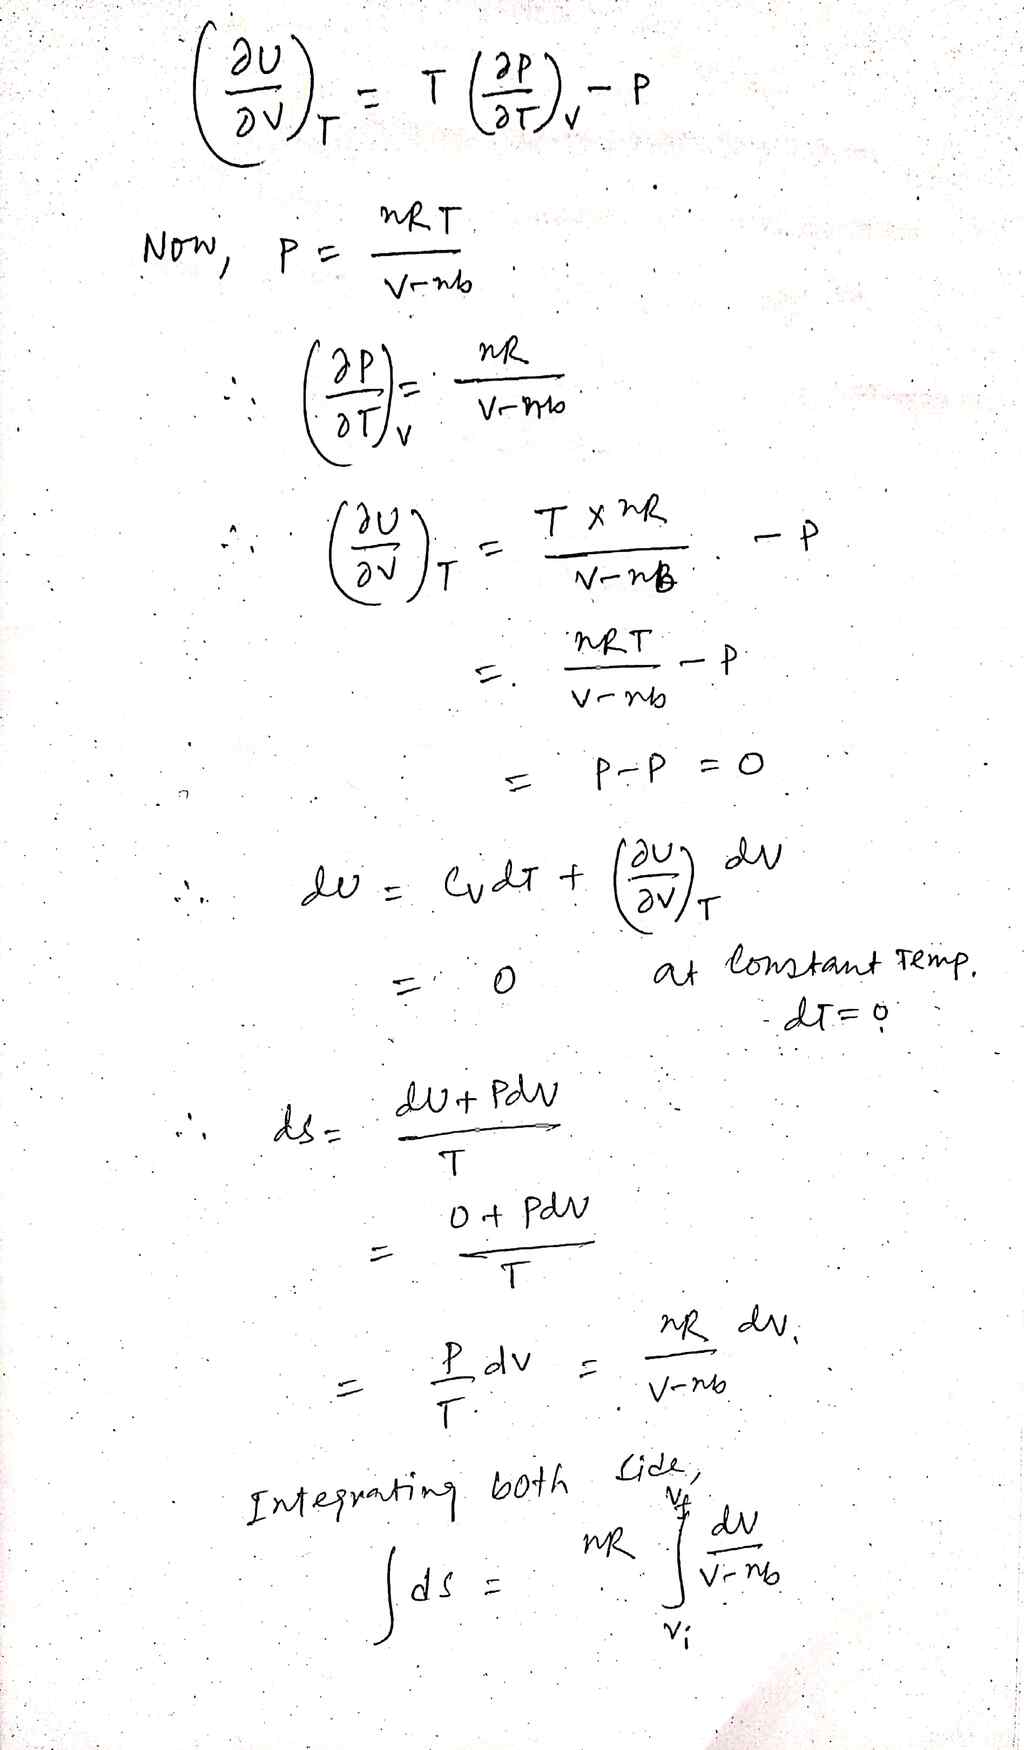 (∂U/∂V)_T = T (∂P/∂T)_V - P
Now, P = nRT / V-nb
∴ (∂P/∂T)_V = nR / V-nb
∴ (∂U/∂V)_T = T × nR / V-nB - P
= nRT / V-nb - P
= P-P = 0
∴ dU = CvdT + (∂U/∂V)_T dV
= 0 at constant Temp.
dT = 0
∴ ds = dU + Pdv / T
= 0 + Pdv / T
= P/T dv = nR / V-nb dv.
Integrating both side,
∫ ds = nR ∫_{Vi}^{Vf} dv / V-nb